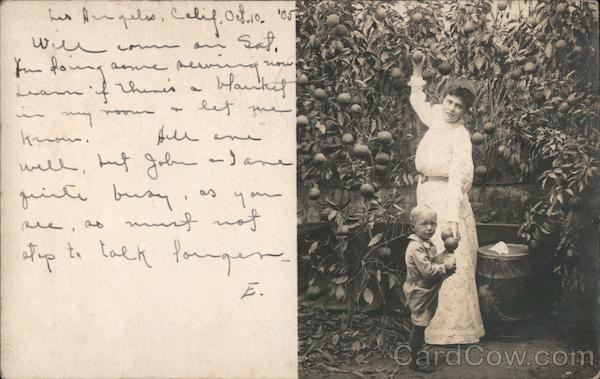 Los Angeles, Calif, Oct. 10. '05
Will come on Sat.
I'm doing some sewing now
learn if there's a blanket
in my room & let me
know. All are
well, but John & I are
quite busy, as you
see, so must not
stop to talk longer—
E.
© CardCow.com